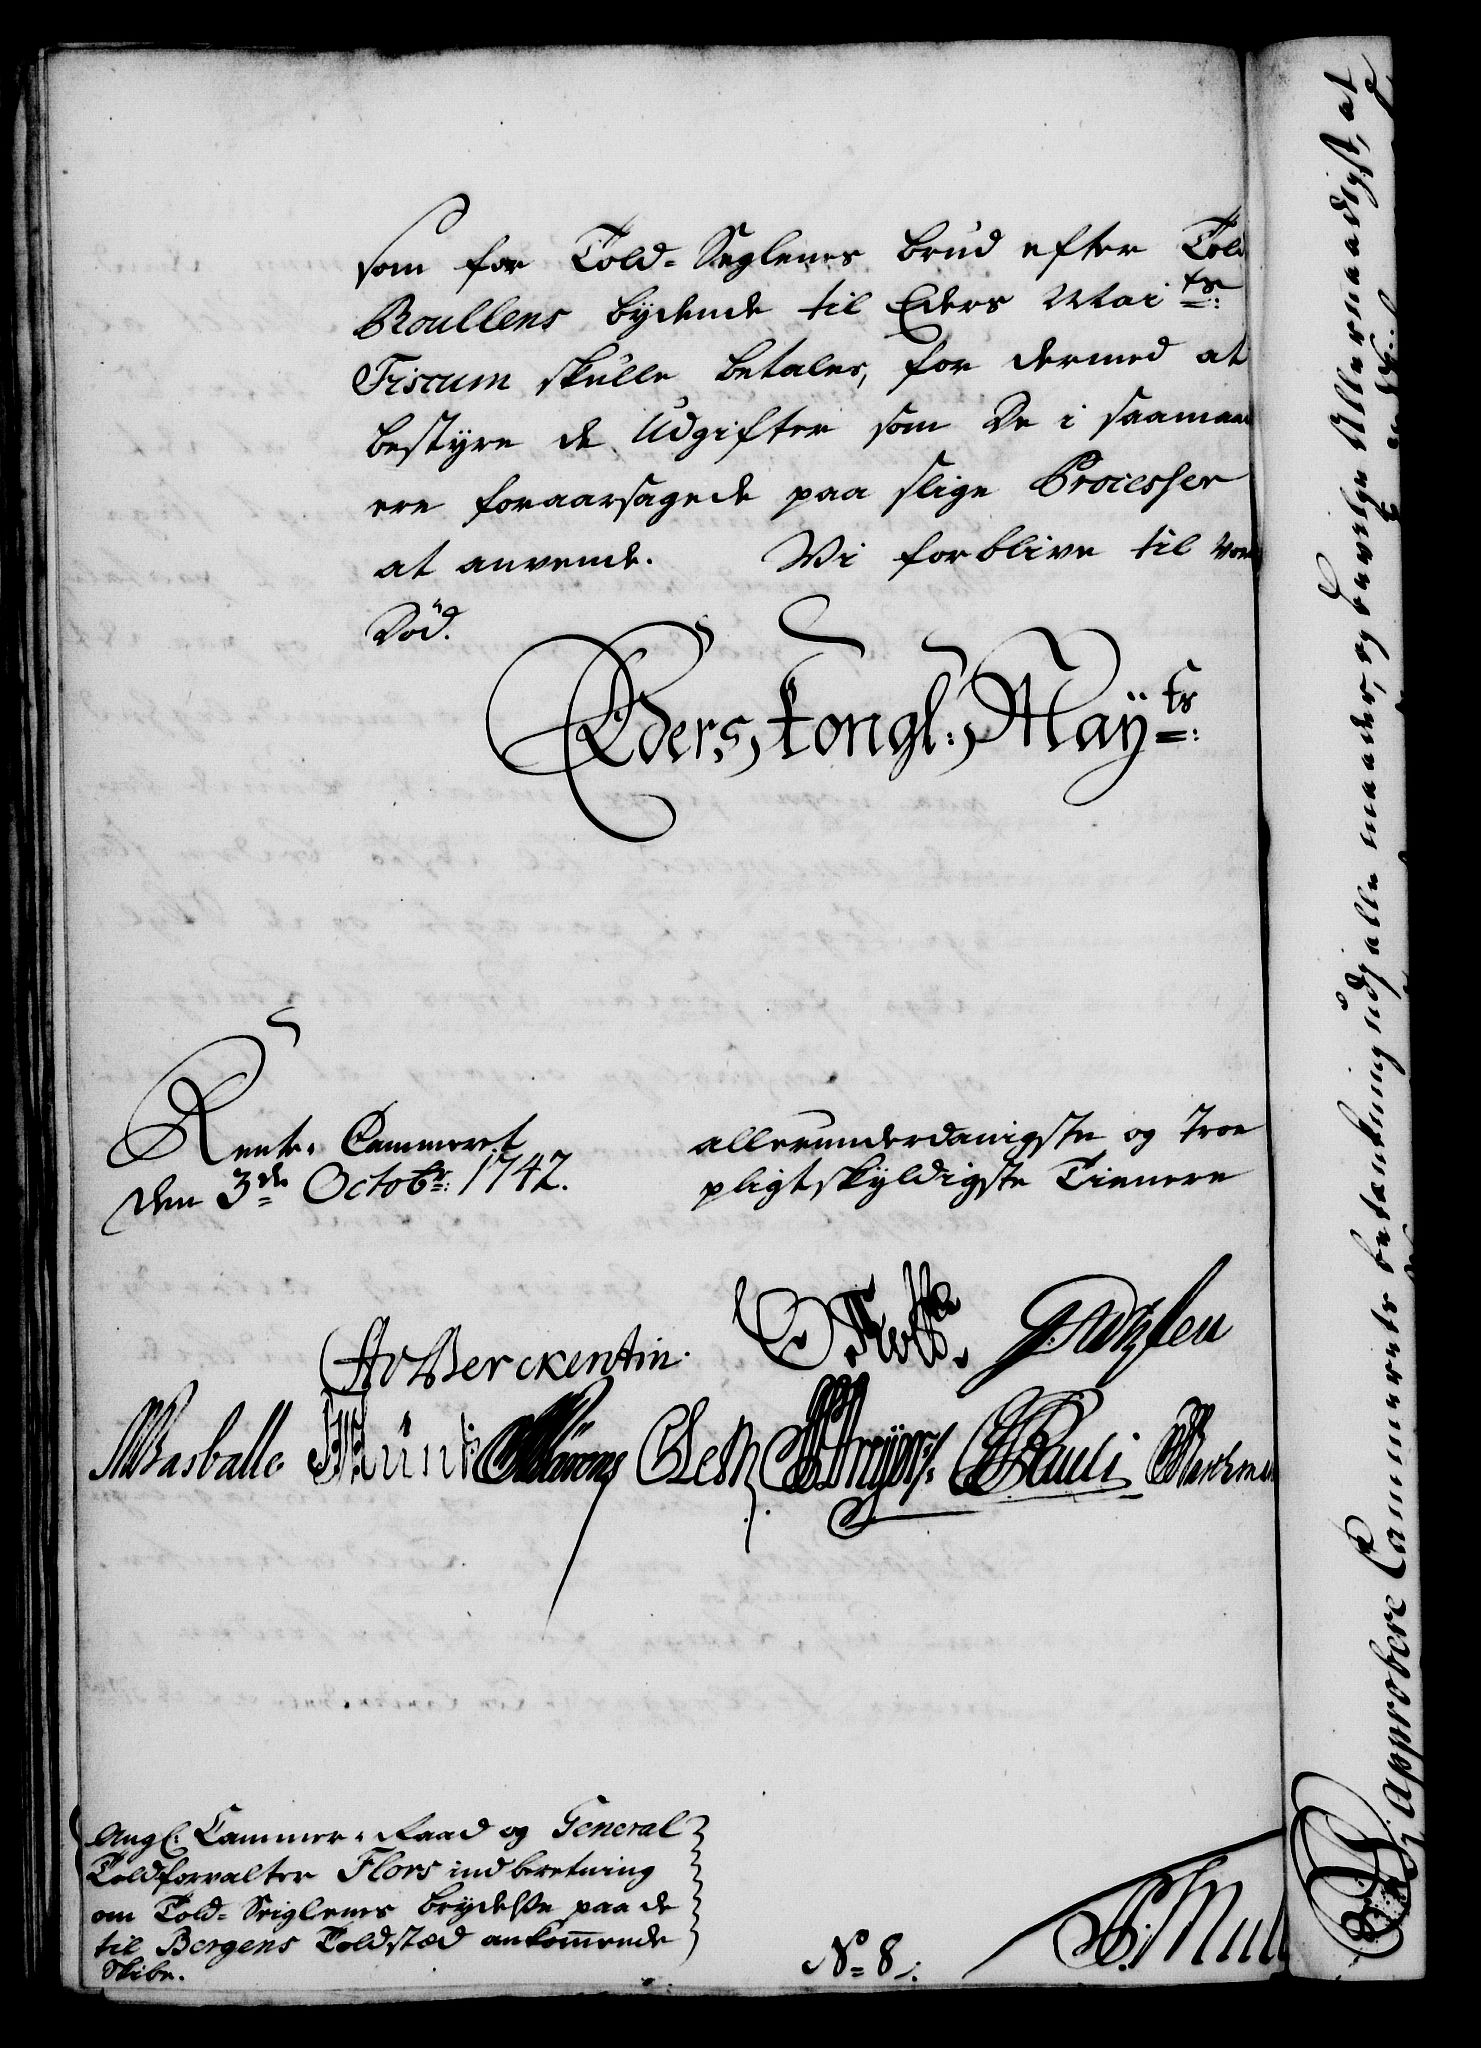 som for Told-Seglenes brud efter Told
Roullens bydende til Eders Mai<sup>ts</sup>:
Fiscum skulle betales, for dermed at
bestyre de Udgifter som De i saamaade
ere foraarsagede paa slige Processer
at anvende. Vi forblive til vor
Död.
Eders Kongl: May<sup>ts</sup>:
Rente-Cammeret
den 3<sup>de</sup> Octobr: 1742.
allerunderdanigste og Troe
pligtskyldigste Tienere
Berckentin.
Basballe
Pauli
Angl: Cammer-Raad og General
Toldforvalter Flors indberetning
om Told-Seiglenes brydelse paa de
til Bergens Toldstæd ankommende
Skibe.
No 8.
Approbere Cammerets betænkning udj alle maader, og bevilge Allernaadigst, at